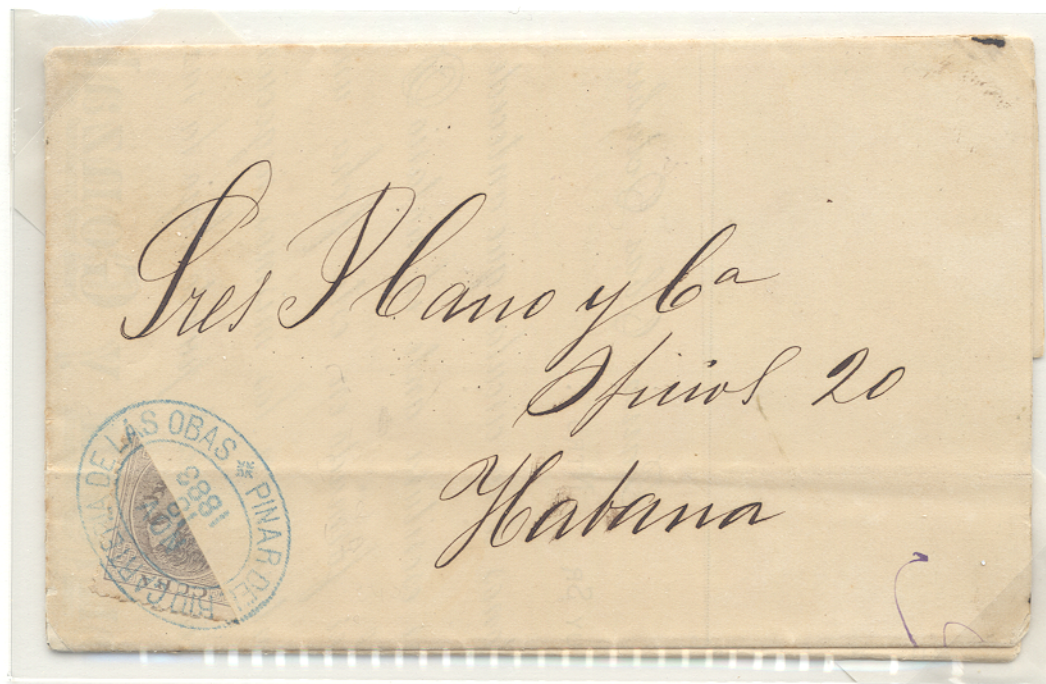 Sres P Cano y Ca
Oficios 20
Habana
DE LAS OBAS * PINAR DEL RIO
1883
CUBA